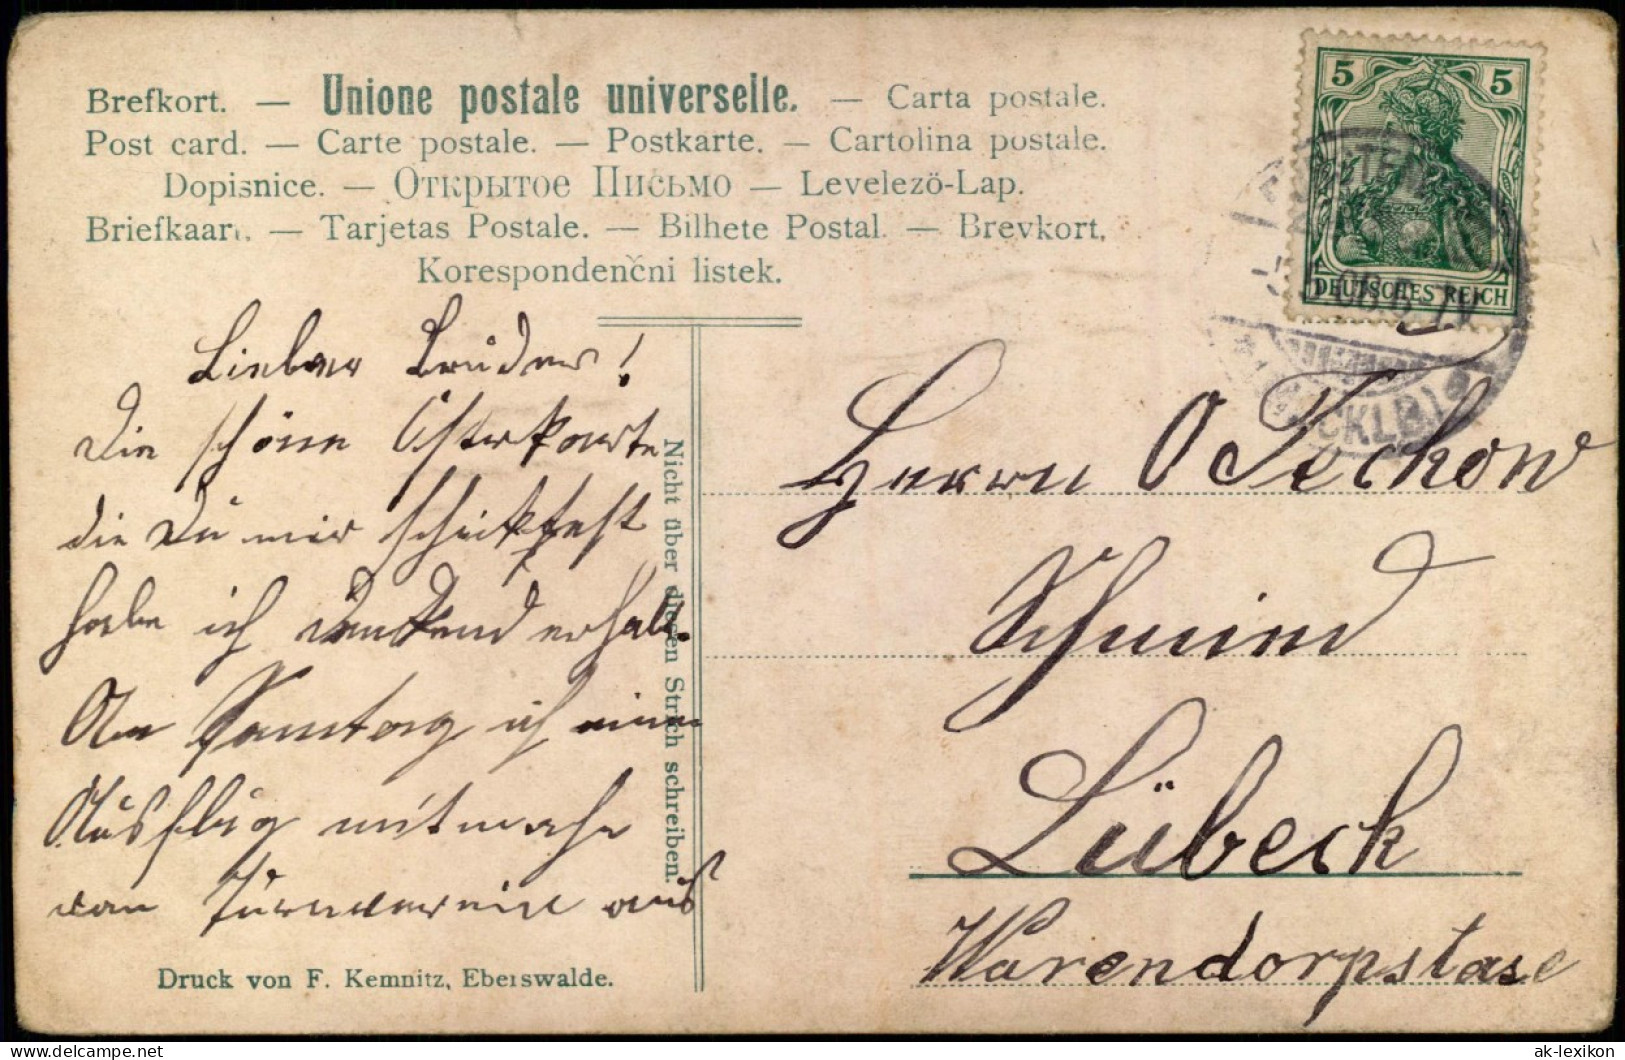 Brefkort. — Unione postale universelle. — Carta postale.
Post card. — Carte postale. — Postkarte. — Cartolina postale.
Dopisnice. — Открытое Письмо — Levelezö-Lap.
Briefkaart. — Tarjetas Postale. — Bilhete Postal. — Brevkort.
Korespondenčni listek.
5 5
DEUTSCHES REICH
(MECKLB.)
Lieber Bruder!
Die schöne Osterkarte
die Du mir schicktest
habe ich dankend erhalt.
Am Sonntag ich einen
Ausflug mitmache
vom Turnverein aus
Nicht über diesen Strich schreiben.
Herrn O Techow
Schmied
Lübeck
Warendorpstase
Druck von F. Kemnitz, Eberswalde.
ak-lexikon
delcampe.net